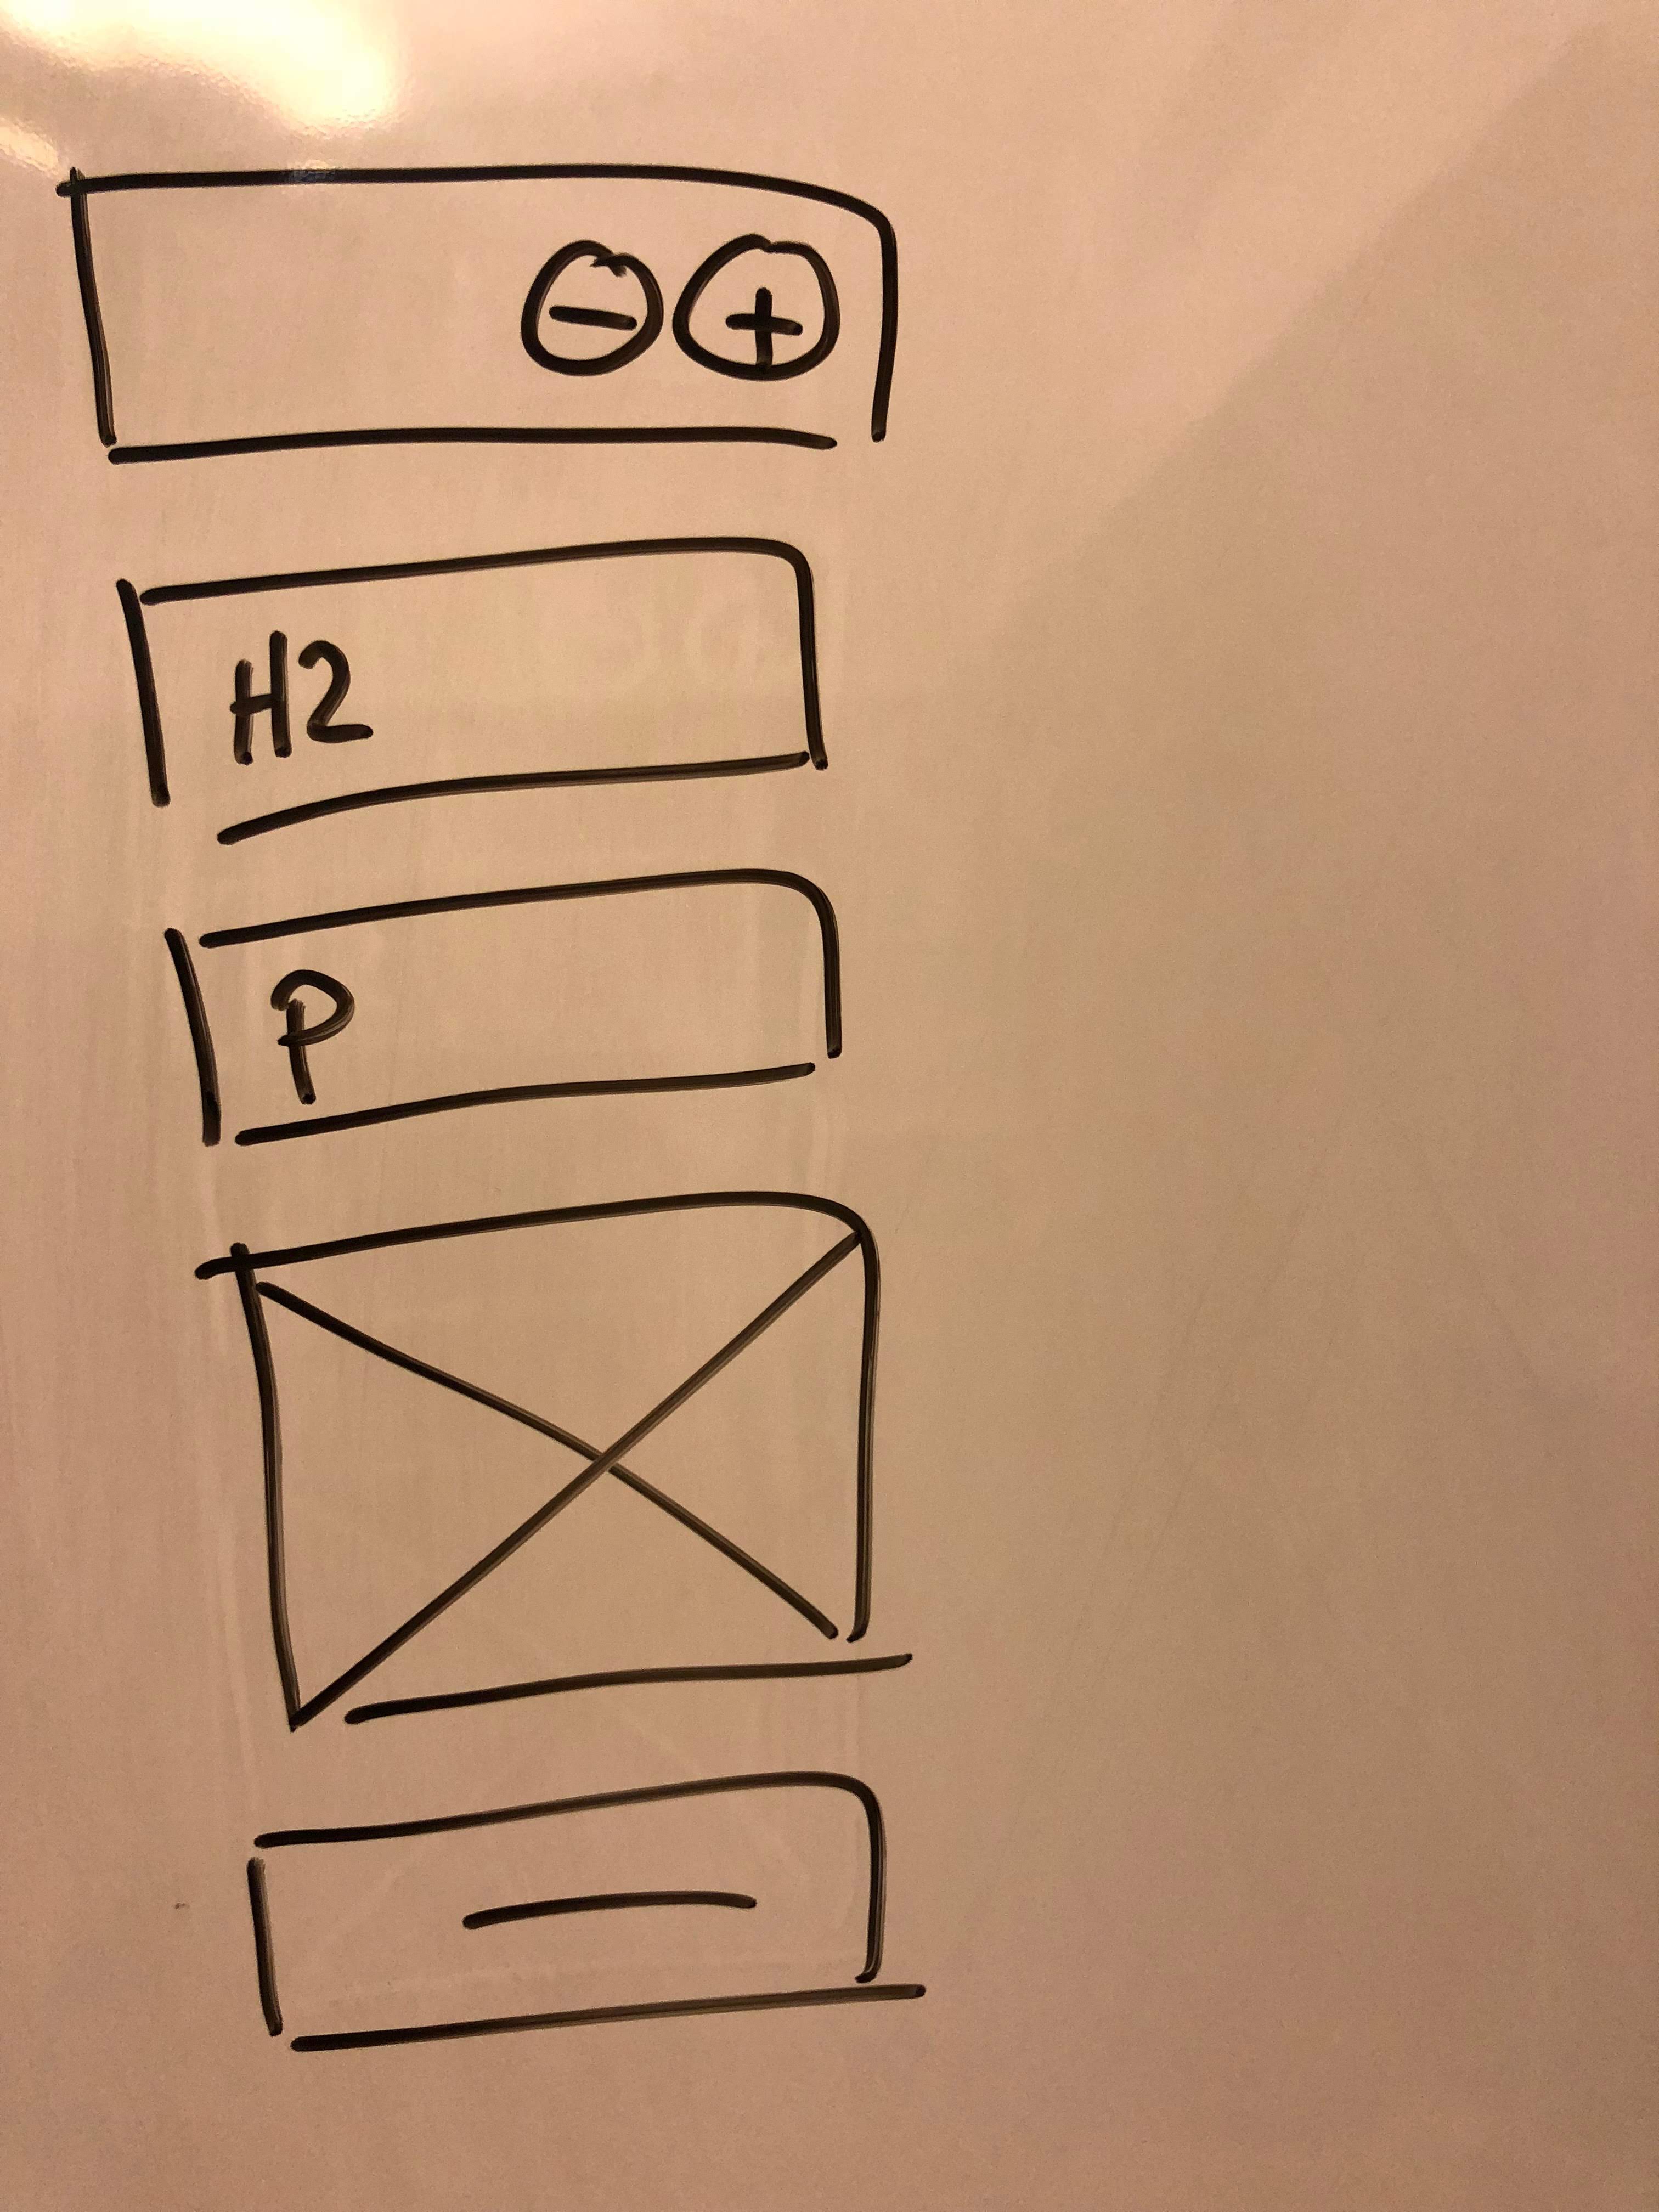 − +
H2
P